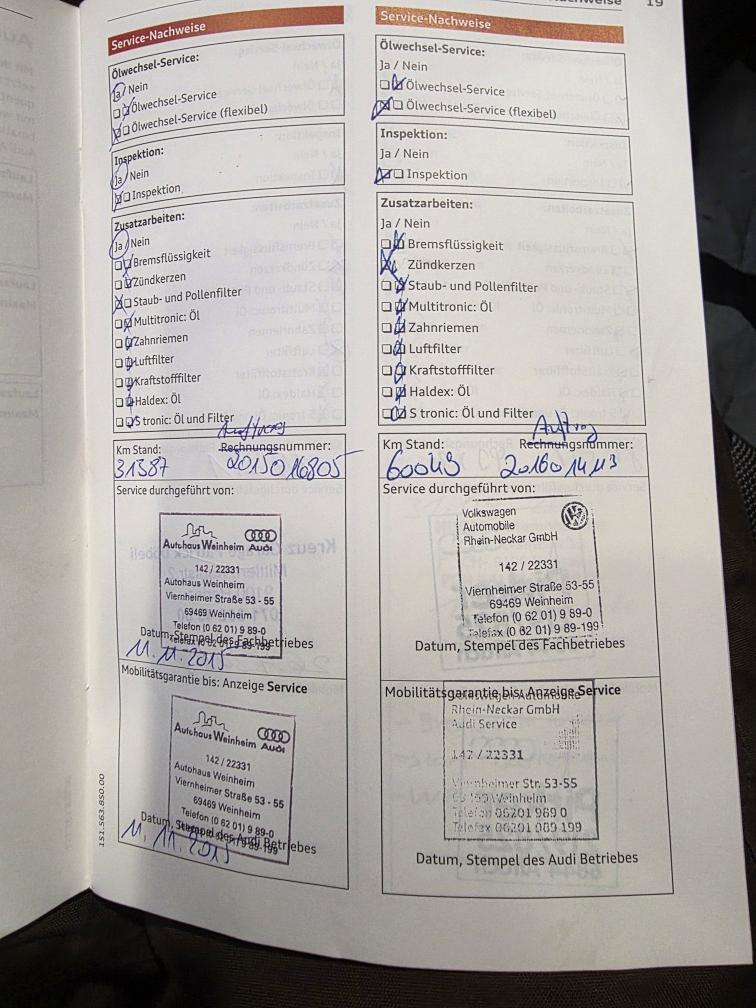 19
Service-Nachweise
Ölwechsel-Service:
Ja / Nein
Ölwechsel-Service
Ölwechsel-Service (flexibel)
Inspektion:
Ja / Nein
Inspektion
Zusatzarbeiten:
Ja / Nein
Bremsflüssigkeit
Zündkerzen
Staub- und Pollenfilter
Multitronic: Öl
Zahnriemen
Luftfilter
Kraftstofffilter
Haldex: Öl
S tronic: Öl und Filter
Auftrag
Km Stand: Rechnungsnummer:
31387 2015016805
Service durchgeführt von:
Autohaus Weinheim Audi
142 / 22331
Autohaus Weinheim
Viernheimer Straße 53 - 55
69469 Weinheim
Telefon (0 62 01) 9 89-0
Telefax (0 62 01) 9 89-199
Datum, Stempel des Fachbetriebes
11.11.2015
Mobilitätsgarantie bis: Anzeige Service
Autohaus Weinheim Audi
142 / 22331
Autohaus Weinheim
Viernheimer Straße 53 - 55
69469 Weinheim
Telefon (0 62 01) 9 89-0
Datum, Stempel des Audi Betriebes
11.11.2015
151.563.850.00
Service-Nachweise
Ölwechsel-Service:
Ja / Nein
Ölwechsel-Service
Ölwechsel-Service (flexibel)
Inspektion:
Ja / Nein
Inspektion
Zusatzarbeiten:
Ja / Nein
Bremsflüssigkeit
Zündkerzen
Staub- und Pollenfilter
Multitronic: Öl
Zahnriemen
Luftfilter
Kraftstofffilter
Haldex: Öl
S tronic: Öl und Filter
Auftrag
Km Stand: Rechnungsnummer:
60043
Service durchgeführt von:
Volkswagen
Automobile
Rhein-Neckar GmbH
142 / 22331
Viernheimer Straße 53-55
69469 Weinheim
Telefon (0 62 01) 9 89-0
Telefax (0 62 01) 9 89-199
Datum, Stempel des Fachbetriebes
Mobilitätsgarantie bis: Anzeige Service
Volkswagen Automobile
Rhein-Neckar GmbH
Audi Service
142 / 22331
Viernheimer Str. 53-55
Weinheim
Telefon 06201 989 0
Telefax 06201 989 199
Datum, Stempel des Audi Betriebes